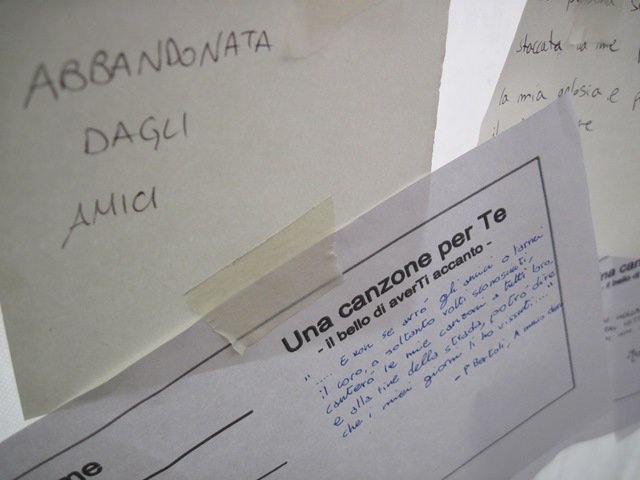 ABBANDONATA
DAGLI
AMICI
staccata da me
la mia golosia e
il
Una canzone per Te
- il bello di averTi accanto -
".... E non so se avrò gli amici a farmi
il coro, o soltanto volti sconosciuti,
canterò le mie canzoni a tutti loro
e alla fine della strada, potrò dire
che i miei giorni li ho vissuti..."
- P. Bertoli, A muso duro
me
Una can
- il bello